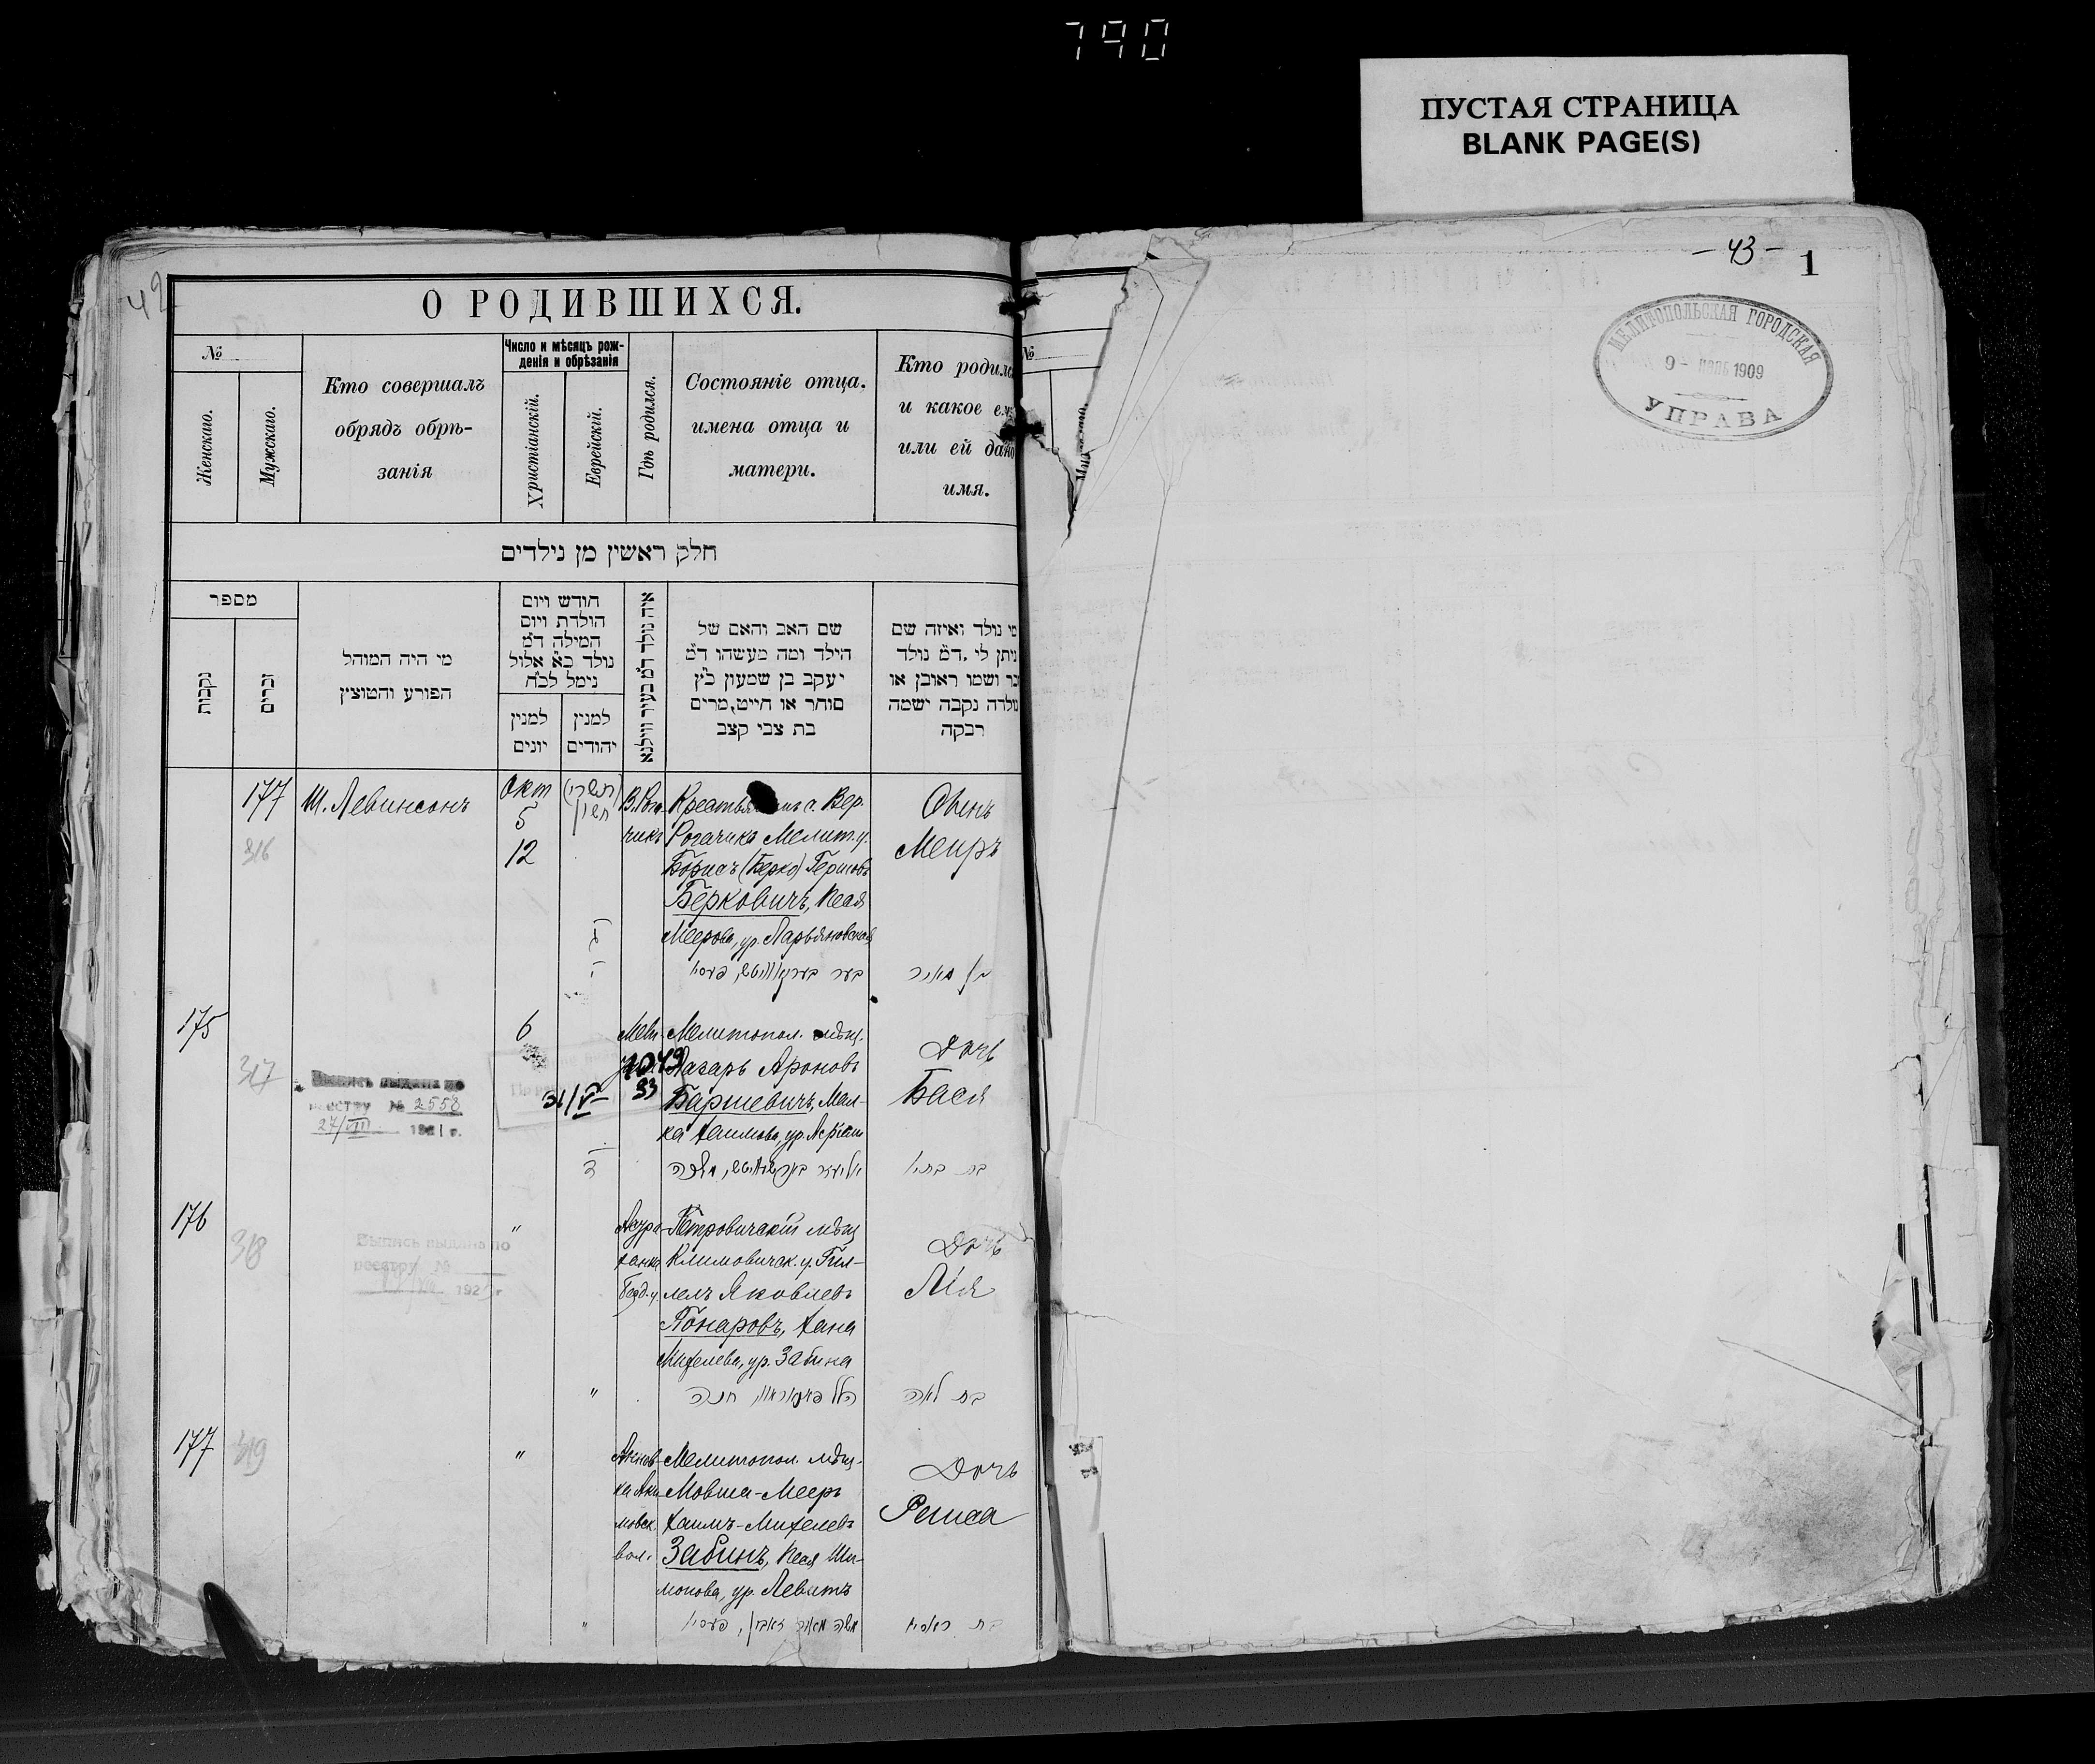 790
ПУСТАЯ СТРАНИЦА
BLANK PAGE(S)
42
О РОДИВШИХСЯ.
№
Женскаго.
Мужскаго.
Кто совершалъ
обрядъ обрѣ-
занія
Число и мѣсяцъ рож-
денія и обрѣзанія
Христіанскій.
Еврейскій.
Гдѣ родился.
Состояніе отца,
имена отца и
матери.
Кто родилс
и какое ем
или ей дано
имя.
חלק ראשין מן נילדים
מספר
נקבות
זכרים
מי היה המוהל
הפורע והטוצין
חודש ויום
הולדת ויום
המילה ד״מ
נולד כ״א אלול
נימל לכ״ח
למנין
יונים
למנין
יהודים
איה נולד ד״מ בעיר ווילנא
שם האב והאם של
הילד ומה מעשהו ד״מ
יעקב בן שמעון כ״ץ
סוחר או חייט, מרים
בת צבי קצב
מי נולד ואיזה שם
ניתן לי. ד״מ נולד
זכר ושמו ראובן או
נולדה נקבה ישמה
רבקה
177
316
Ш. Левинсонъ
Окт
5
12
(תשרי)
חשון
В. Рога-
чикъ
с. Вер.
Рогачика Мелит. у.
Борисъ (Берко) Гершовъ
Берковичъ, Песя
Меерова, ур. Ларьяновская
Сынъ
Меиръ
בן מאיר
175
317
Выпись выдана по
реестру № 2558
27/VIII 1921 г.
6
31/VII
1049
33
Мелитопол. мѣщ.
Лазарь Ароновъ
Баршевичъ, Мал-
ка Хаимова, ур.
Дочь
Бася
בת בתי׳
176
318
Выпись выдана по
реестру №
192 г.
"
Петровичскій мѣщ
Климовичск. у. Гил-
лель Яковлевъ
Понаровъ, Хана
Михелева, ур. Забина
"
חנה
Дочь
Лія
בת לאה
177
319
"
Акимов-
ка Аки-
мовск.
вол.
Мелитопол. мѣщ.
Мовша-Мееръ
Хаимъ-Михелевъ
Забинъ, Песя Ши-
монова, ур. Левитъ
"
Дочь
- 43 -
1
№
МЕЛИТОПОЛЬСКАЯ ГОРОДСКАЯ
9 - НОЯБ 1909
УПРАВА